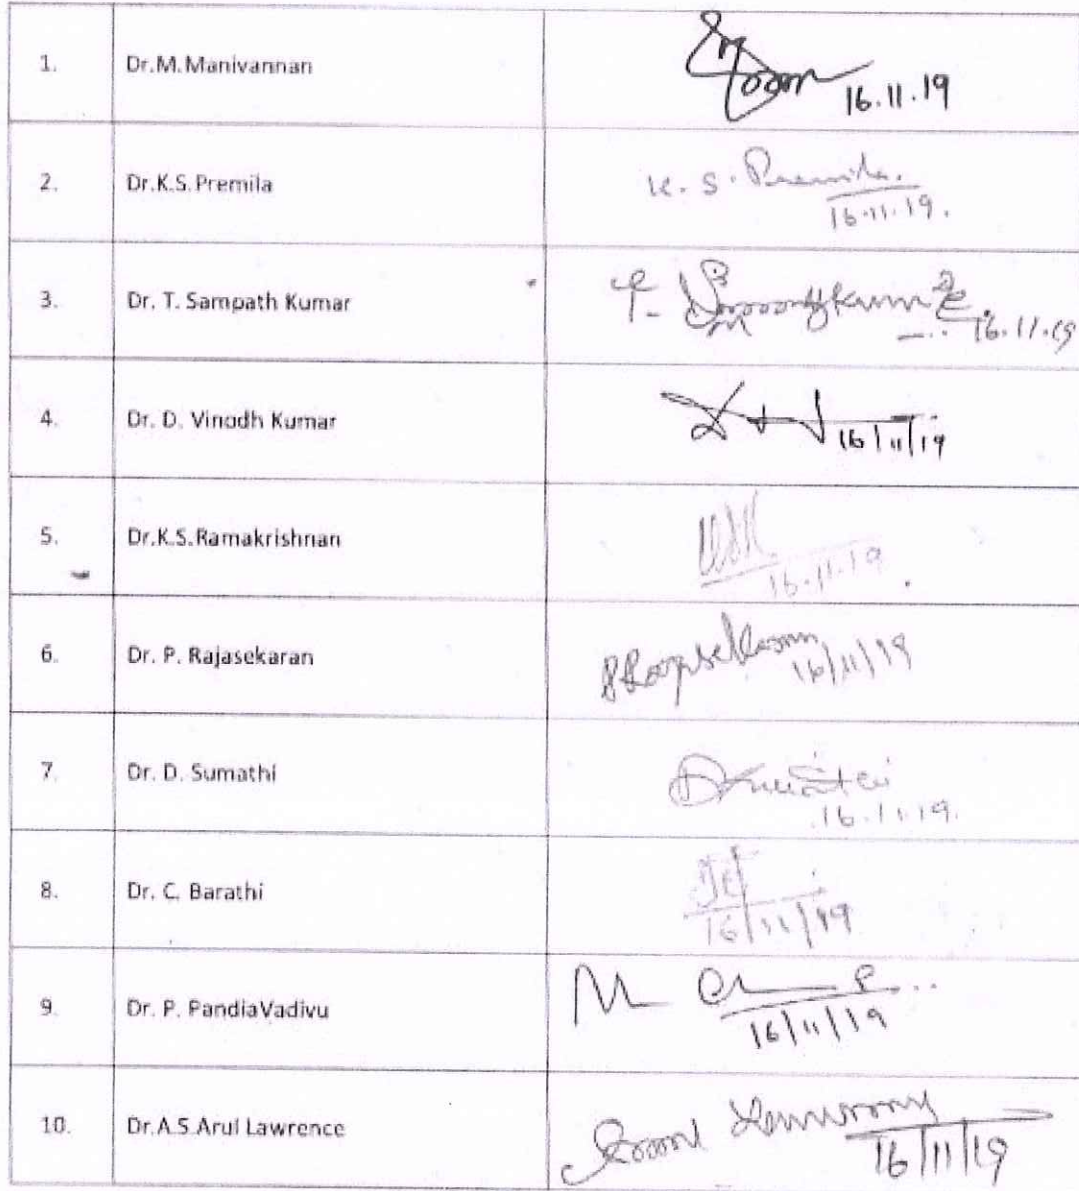 1. Dr.M.Manivannan 16.11.19
2. Dr.K.S.Premila K. S. Premila.
16.11.19.
3. Dr. T. Sampath Kumar T. 16.11.19
4. Dr. D. Vinodh Kumar 16/11/19
5. Dr.K.S.Ramakrishnan
16.11.19
6. Dr. P. Rajasekaran P Rajasekaran
16/11/19
7. Dr. D. Sumathi
16.11.19.
8. Dr. C. Barathi
16/11/19
9. Dr. P. PandiaVadivu
16/11/19
10. Dr.A.S.Arul Lawrence
16/11/19